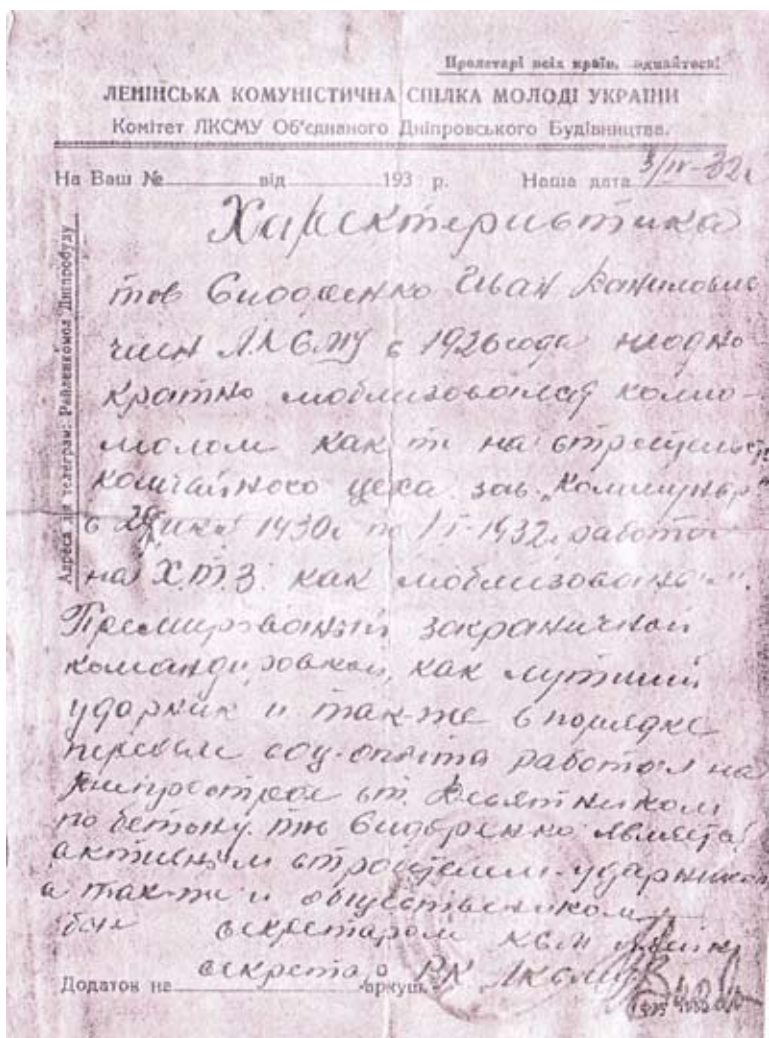 Пролетарі всіх країн, єднайтеся!
ЛЕНІНСЬКА КОМУНІСТИЧНА СПІЛКА МОЛОДІ УКРАЇНИ
Комітет ЛКСМУ Об'єднаного Дніпровського Будівництва.
На Ваш № від 193 р. Наша дата 3/IV-32 г
Адреса для телеграм: Райленкомол Дніпробуду
Характеристика
тов Сидоренко Иван Данилович
член ЛКСМУ с 1926 года неодно-
кратно мобилизовался комсо-
молом как т на строительство
цеха зав. "Коммунар"
с 1930г по 1/I-1932г. работал
на Х.Т.З. как мобилизованный.
Премированный заграничной
командировкой, как лутший
ударник и так-же в порядке
соц-опыта работал на
Днипрострое ст. десятником
по бетону. тов Сидоренко является
активным строителем-ударником
а так-же и общественником
был секретаром КСМ
секретар РК ЛКСМУ
Додаток на аркуш.